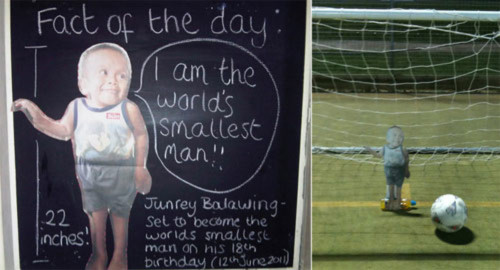 Fact of the day:
I am the
world's
smallest
Man!!
22
inches!
Junrey Balawing-
set to become the
worlds smallest
man on his 18th
birthday (12th June 2011)